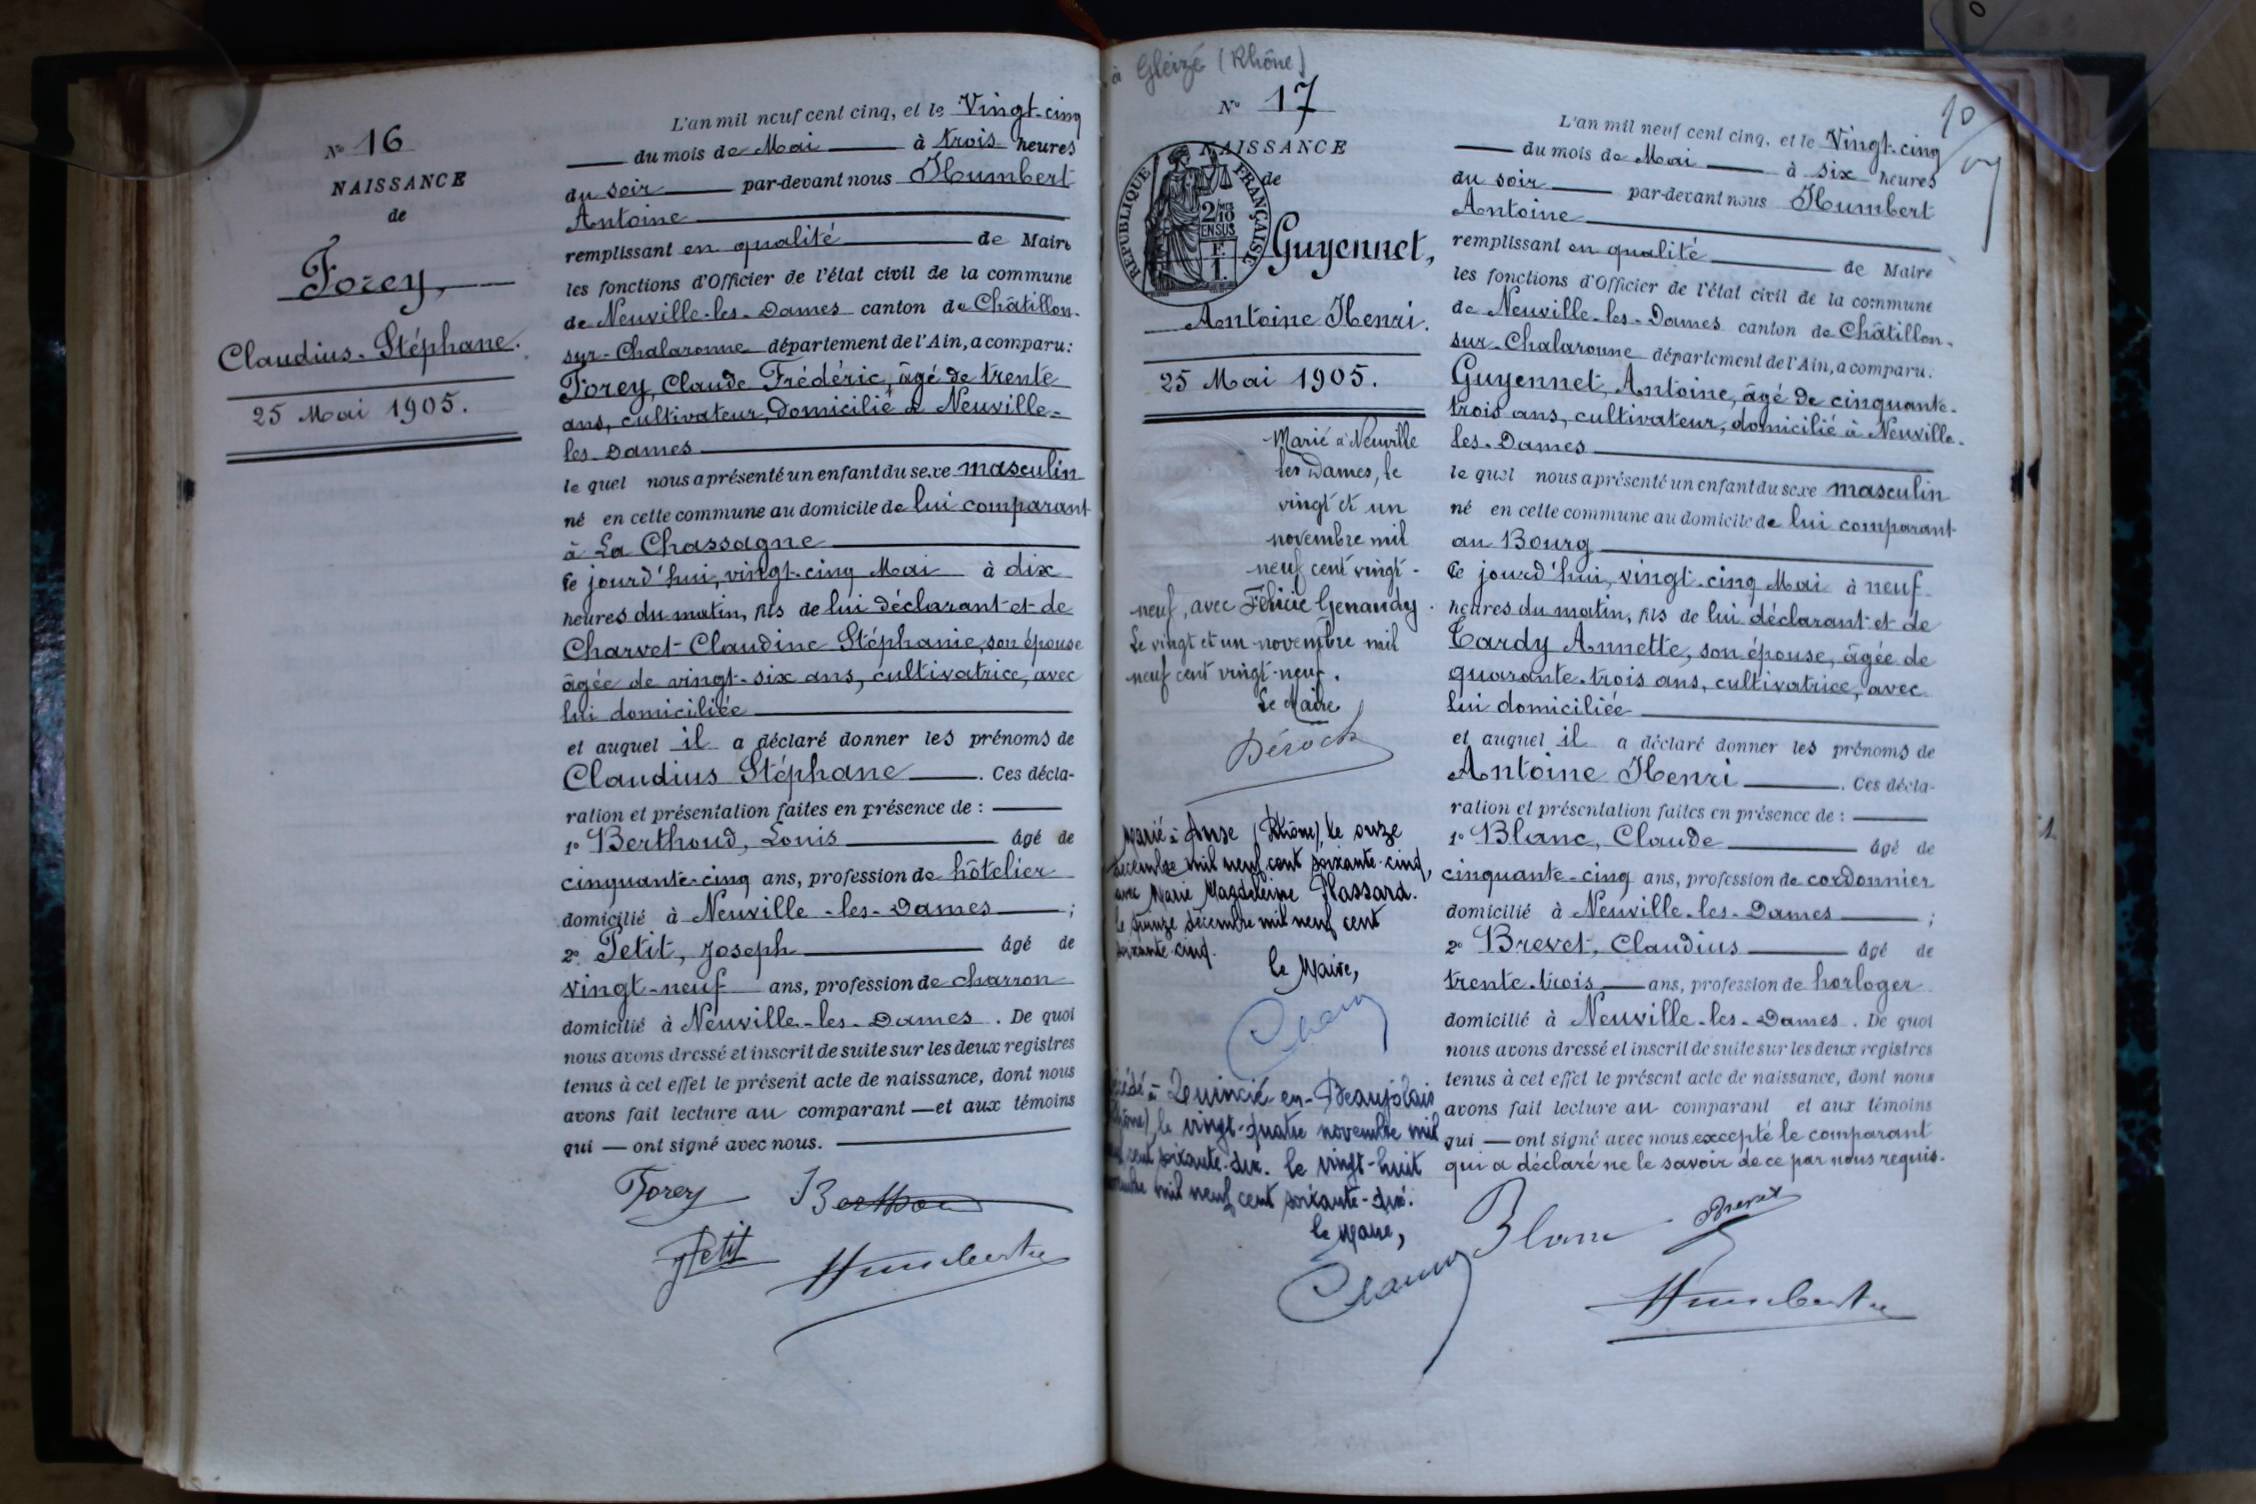 N° 16
NAISSANCE
de
Forey,
Claudius-Stéphane.
25 Mai 1905.
L'an mil neuf cent cinq, et le Vingt-cinq
du mois de Mai à trois heures
du soir par-devant nous Humbert
Antoine
remplissant en qualité de Maire
les fonctions d'Officier de l'état civil de la commune
de Neuville-les-Dames canton de Châtillon-
sur-Chalaronne département de l'Ain, a comparu:
Forey, Claude Frédéric, âgé de trente
ans, cultivateur, domicilié à Neuville-
les-Dames
le quel nous a présenté un enfant du sexe masculin
né en cette commune au domicile de lui comparant
à La Chassagne
ce jourd'hui, vingt-cinq Mai à dix
heures du matin, fils de lui déclarant et de
Charvet Claudine Stéphanie, son épouse
âgée de vingt-six ans, cultivatrice, avec
lui domiciliée
et auquel il a déclaré donner les prénoms de
Claudius Stéphane . Ces décla-
ration et présentation faites en présence de :
1° Berthoud, Louis âgé de
cinquante-cinq ans, profession de hôtelier
domicilié à Neuville-les-Dames ;
2° Petit, Joseph âgé de
vingt-neuf ans, profession de charron
domicilié à Neuville-les-Dames . De quoi
nous avons dressé et inscrit de suite sur les deux registres
tenus à cet effet le présent acte de naissance, dont nous
avons fait lecture au comparant — et aux témoins
qui — ont signé avec nous.
Forey Berthoud
Petit Humbert
à Gleizé (Rhône)
N° 17
NAISSANCE
de
REPUBLIQUE FRANÇAISE
2/10 EN SUS
Guyennet,
Antoine Henri.
25 Mai 1905.
Marié à Neuville
les Dames, le
vingt et un
novembre mil
neuf cent vingt-
neuf, avec Félicie Genaudy.
Le vingt et un novembre mil
neuf cent vingt-neuf.
Le Maire
Marié à Anse (Rhône), le onze
décembre mil neuf cent soixante-cinq,
avec Marie Magdeleine Plassard.
le quinze décembre mil neuf cent
soixante-cinq.
le Maire,
Décédé à Quincié-en-Beaujolais
(Rhône), le vingt-quatre novembre mil
neuf cent soixante-dix. le vingt-huit
novembre mil neuf cent soixante-dix.
le Maire,
10
L'an mil neuf cent cinq, et le Vingt-cinq
du mois de Mai à six heures
du soir par-devant nous Humbert
Antoine
remplissant en qualité de Maire
les fonctions d'Officier de l'état civil de la commune
de Neuville-les-Dames canton de Châtillon-
sur-Chalaronne département de l'Ain, a comparu:
Guyennet, Antoine, âgé de cinquante-
trois ans, cultivateur, domicilié à Neuville-
les-Dames
le quel nous a présenté un enfant du sexe masculin
né en cette commune au domicile de lui comparant
au Bourg
ce jourd'hui, vingt-cinq Mai à neuf
heures du matin, fils de lui déclarant et de
Tardy Annette, son épouse, âgée de
quarante-trois ans, cultivatrice, avec
lui domiciliée
et auquel il a déclaré donner les prénoms de
Antoine Henri . Ces décla-
ration et présentation faites en présence de :
1° Blanc, Claude âgé de
cinquante-cinq ans, profession de cordonnier
domicilié à Neuville-les-Dames ;
2° Brevet, Claudius âgé de
trente-trois ans, profession de horloger
domicilié à Neuville-les-Dames . De quoi
nous avons dressé et inscrit de suite sur les deux registres
tenus à cet effet le présent acte de naissance, dont nous
avons fait lecture au comparant et aux témoins
qui — ont signé avec nous excepté le comparant
qui a déclaré ne le savoir de ce par nous requis.
Blanc Brevet
Humbert